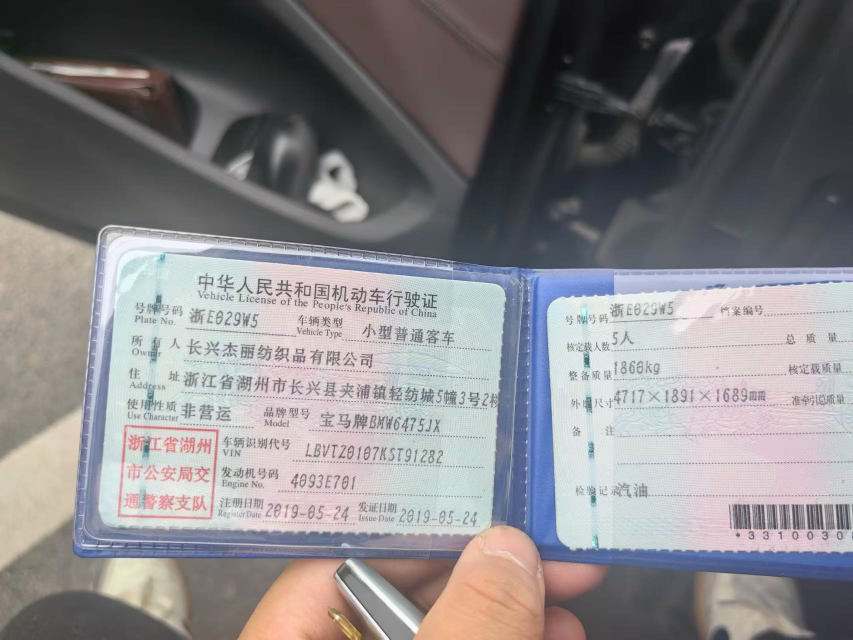 中华人民共和国机动车行驶证
Vehicle License of the People's Republic of China
号牌号码 浙E029W5 车辆类型 小型普通客车
Plate No. Vehicle Type
所有人 长兴杰丽纺织品有限公司
Owner
住址 浙江省湖州市长兴县夹浦镇轻纺城5幢3号2楼
Address
使用性质 非营运 品牌型号 宝马牌BMW6475JX
Use Character Model
浙江省湖州
市公安局交
通警察支队
车辆识别代号 LBVTZ0107KST91282
VIN
发动机号码 4093E701
Engine No.
注册日期 2019-05-24 发证日期 2019-05-24
Register Date Issue Date
号牌号码 浙E029W5 档案编号
核定载人数 5人 总质量
整备质量 1866kg 核定载质量
外廓尺寸 4717×1891×1689mm 准牵引总质量
备注
检验记录 汽油
*3310030